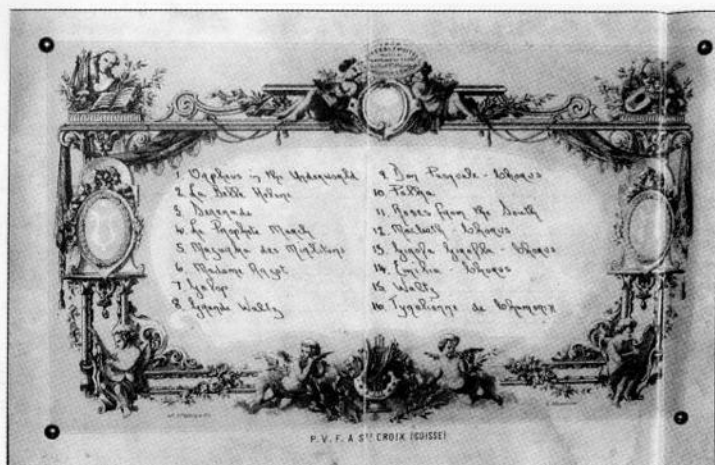 1. Orpheus in the Underworld
2. La Belle Helene
3. Serenade
4. Le Prophete March
5. Mazurka des
6. Madame Angot
7. Galop
8. Grande Waltz
9. Don Pasquale - Chorus
10. Polka
11. Roses from the South
12. Macbeth - Chorus
13. Girofle Giroffla - Chorus
14. Emilia - Chorus
15. Waltz
16. Tyrolienne de Chamonix
P. V. F. A STE CROIX (SUISSE)